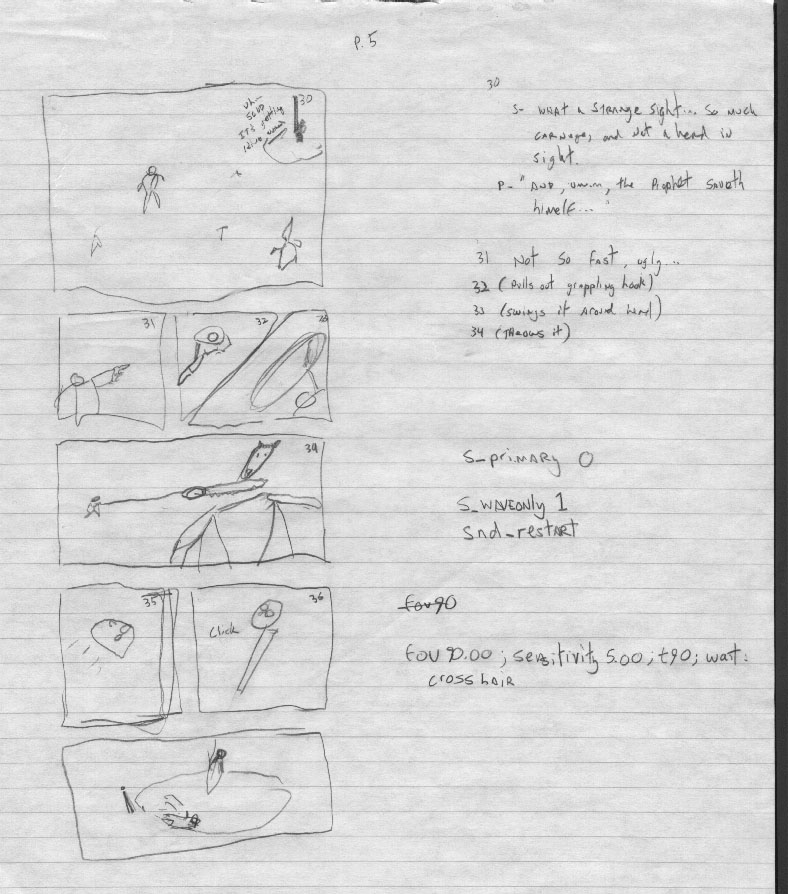 p.5
30
uh...
SOUD
IT'S getting
30
S- WHAT A STRANGE Sight... So much
CARNAGE, and Not A head in
sight.
P- "AND, umm, the Prophet Saveth
himself..."
31 Not So Fast, ugly...
32 (Pulls out grappling hook)
33 (Swings it Around head)
34 (THROWS it)
31
32
33
34
S_primary 0
S_WAVEonly 1
Snd_restart
35
36
Click
fov90
fov 90.00; sensitivity 5.00; t90; wait:
crosshair